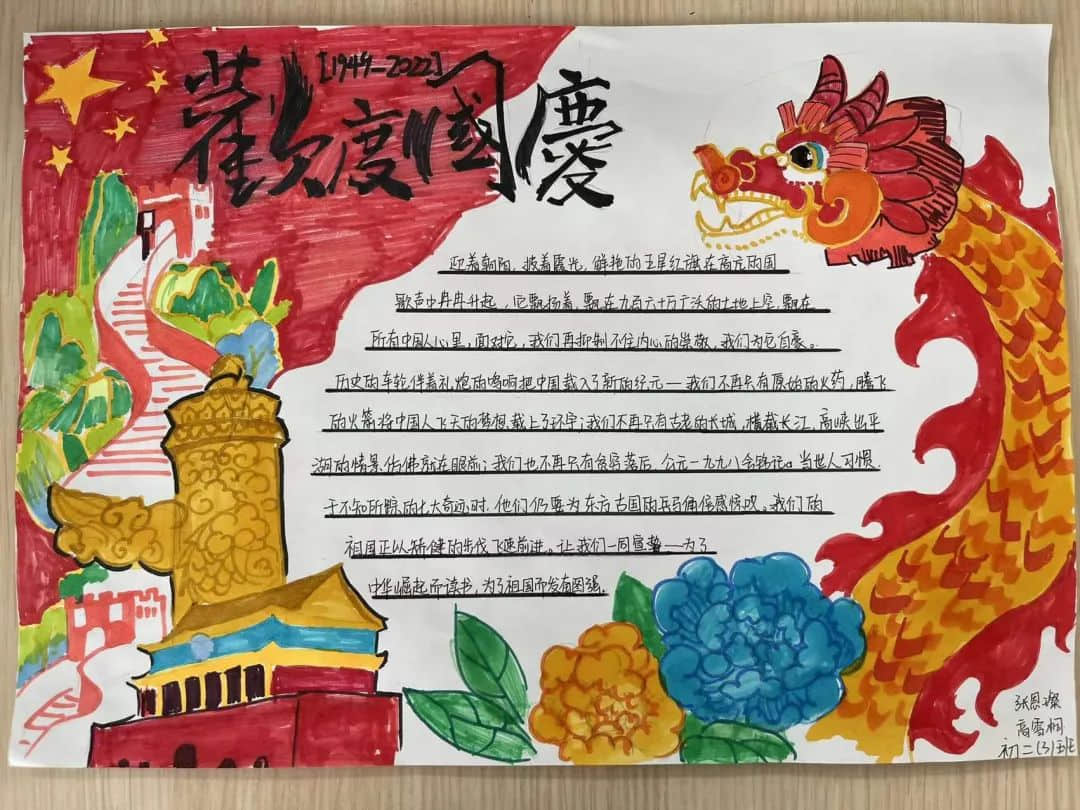 [1949-2022]
歡度國慶
迎着朝阳，披着霞光，鲜艳的五星红旗在高亢的国
歌声中冉冉升起，它飘扬着，飘在九百六十万广沃的土地上空，飘在
所有中国人心里，面对它，我们再抑制不住内心的崇敬，我们为它自豪。
历史的车轮伴着礼炮的鸣响把中国载入了新的纪元—我们不再只有原始的火药，腾飞
的火箭将中国人飞天的梦想载上了环宇；我们不再只有古老的长城，横截长江，高峡出平
湖的情景仿佛就在眼前；我们也不再只有贫穷落后，公元一九九八会铭记。当世人习惯
于不知所踪的七大奇迹时，他们仍要为东方古国的兵马俑倍感惊叹。我们的
祖国正以矫健的步伐飞速前进。让我们一同宣誓—为了
中华崛起而读书，为了祖国而发奋图强。
张恩璨
高雪桐
初二(3)班